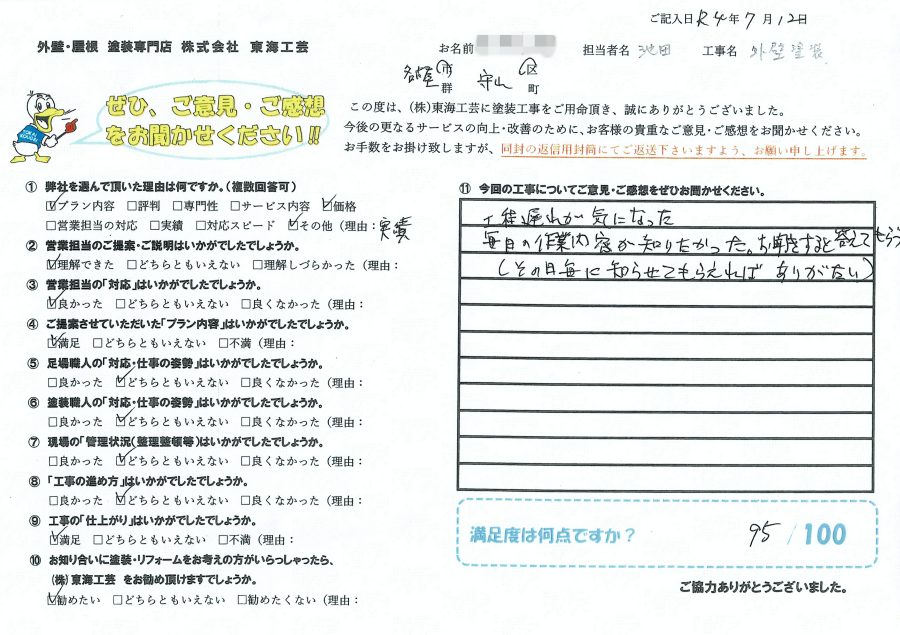 ご記入日 R4年 7月 12日
外壁・屋根 塗装専門店 株式会社 東海工芸
お名前 担当者名 池田 工事名 外壁塗装
名古屋 市 郡 守山 区 町
ぜひ、ご意見・ご感想
をお聞かせください!!
この度は、(株)東海工芸に塗装工事をご用命頂き、誠にありがとうございました。
今後の更なるサービスの向上・改善のために、お客様の貴重なご意見・ご感想をお聞かせください。
お手数をお掛け致しますが、同封の返信用封筒にてご返送下さいますよう、お願い申し上げます。
① 弊社を選んで頂いた理由は何ですか。(複数回答可)
☑プラン内容 □評判 □専門性 □サービス内容 ☑価格
□営業担当の対応 □実績 □対応スピード ☑その他(理由: 実績
② 営業担当のご提案・ご説明はいかがでしたでしょうか。
☑理解できた □どちらともいえない □理解しづらかった(理由:
③ 営業担当の「対応」はいかがでしたでしょうか。
☑良かった □どちらともいえない □良くなかった(理由:
④ ご提案させていただいた「プラン内容」はいかがでしたでしょうか。
☑満足 □どちらともいえない □不満(理由:
⑤ 足場職人の「対応・仕事の姿勢」はいかがでしたでしょうか。
□良かった ☑どちらともいえない □良くなかった(理由:
⑥ 塗装職人の「対応・仕事の姿勢」はいかがでしたでしょうか。
□良かった ☑どちらともいえない □良くなかった(理由:
⑦ 現場の「管理状況(整理整頓等)はいかがでしたでしょうか。
□良かった ☑どちらともいえない □良くなかった(理由:
⑧ 「工事の進め方」はいかがでしたでしょうか。
□良かった ☑どちらともいえない □良くなかった(理由:
⑨ 工事の「仕上がり」はいかがでしたでしょうか。
☑満足 □どちらともいえない □不満(理由:
⑩ お知り合いに塗装・リフォームをお考えの方がいらっしゃったら、
(株)東海工芸 をお勧め頂けますでしょうか。
☑勧めたい □どちらともいえない □勧めたくない(理由:
⑪ 今回の工事についてご意見・ご感想をぜひお聞かせください。
工程遅れが気になった
毎日の作業内容が知りたかった。お聞きすると答えてもらう
(その日毎に知らせてもらえれば ありがたい)
満足度は何点ですか? 95/100
ご協力ありがとうございました。